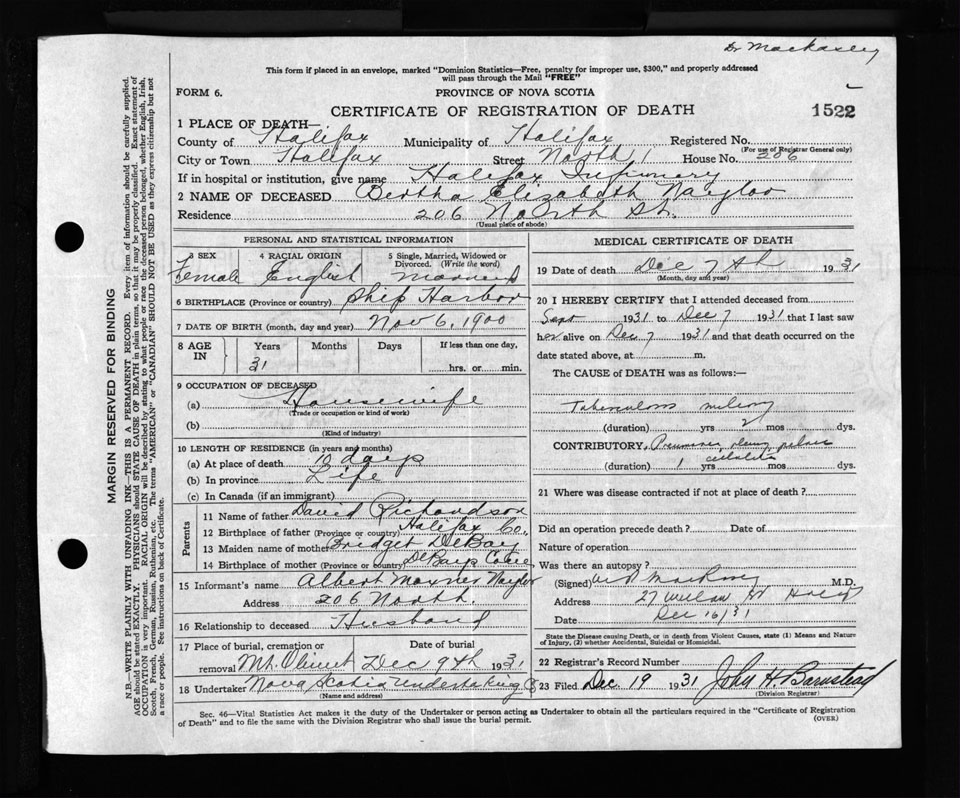 Dr Mackasey
This form if placed in an envelope, marked "Dominion Statistics—Free, penalty for improper use, $300," and properly addressed
will pass through the Mail "FREE"
FORM 6.
PROVINCE OF NOVA SCOTIA
CERTIFICATE OF REGISTRATION OF DEATH
1522
1 PLACE OF DEATH—
County of Halifax Municipality of Halifax Registered No.
(For use of Registrar General only)
City or Town Halifax Street North House No. 206
If in hospital or institution, give name Halifax Infirmary
2 NAME OF DECEASED Bertha Elizabeth Naylor
Residence 206 North St.
(Usual place of abode)
PERSONAL AND STATISTICAL INFORMATION
3 SEX 4 RACIAL ORIGIN 5 Single, Married, Widowed or
Divorced. (Write the word)
Female English Married
6 BIRTHPLACE (Province or country) Ship Harbor
7 DATE OF BIRTH (month, day and year) Nov 6, 1900
8 AGE IN Years Months Days If less than one day,
31 hrs. or min.
9 OCCUPATION OF DECEASED
(a) Housewife
(Trade or occupation or kind of work)
(b)
(Kind of industry)
10 LENGTH OF RESIDENCE (in years and months)
(a) At place of death 10 days
(b) In province Life
(c) In Canada (if an immigrant)
Parents
11 Name of father David Richardson
12 Birthplace of father (Province or country) Halifax Co.
13 Maiden name of mother Bridget DeBay
14 Birthplace of mother (Province or country) DeBays Cove
15 Informant's name Albert Naylor
Address 206 North.
16 Relationship to deceased Husband
17 Place of burial, cremation or Date of burial
removal Mt. Olivet Dec 9th 1931
18 Undertaker Nova Scotia Undertaking Co
(Name and address)
MEDICAL CERTIFICATE OF DEATH
19 Date of death Dec 7th 1931
(Month, day and year)
20 I HEREBY CERTIFY that I attended deceased from
Sept 1931 to Dec 7 1931 that I last saw
her alive on Dec 7 1931 and that death occurred on the
date stated above, at m.
The CAUSE of DEATH was as follows:—
Tuberculosis miliary
(duration) yrs 2 mos dys.
CONTRIBUTORY,
cellulitis
(duration) 1 yrs mos dys.
21 Where was disease contracted if not at place of death?
Did an operation precede death? Date of
Nature of operation
Was there an autopsy?
(Signed) M.D.
Address 27 St
Date Dec 16/31
State the Disease causing Death, or in death from Violent Causes, state (1) Means and Nature
of Injury, (2) whether Accidental, Suicidal or Homicidal.
22 Registrar's Record Number
23 Filed Dec. 19 1931 John H Barnstead
(Division Registrar)
Sec. 46—Vital Statistics Act makes it the duty of the Undertaker or person acting as Undertaker to obtain all the particulars required in the "Certificate of Registration
of Death" and to file the same with the Division Registrar who shall issue the burial permit.
(OVER)
MARGIN RESERVED FOR BINDING
N.B.—WRITE PLAINLY WITH UNFADING INK—THIS IS A PERMANENT RECORD. Every item of information should be carefully supplied.
AGE should be stated EXACTLY. PHYSICIANS should STATE CAUSE OF DEATH in plain terms, so that it may be properly classified. Exact statement of
OCCUPATION is very important. RACIAL ORIGIN will be described by stating to what people or race the deceased person belonged, whether English, Irish,
Scotch, French, German, Russian, Ruthenian, etc. The terms "AMERICAN" or "CANADIAN" SHOULD NOT BE USED as they express citizenship but not
a race or people. See instructions on back of Certificate.